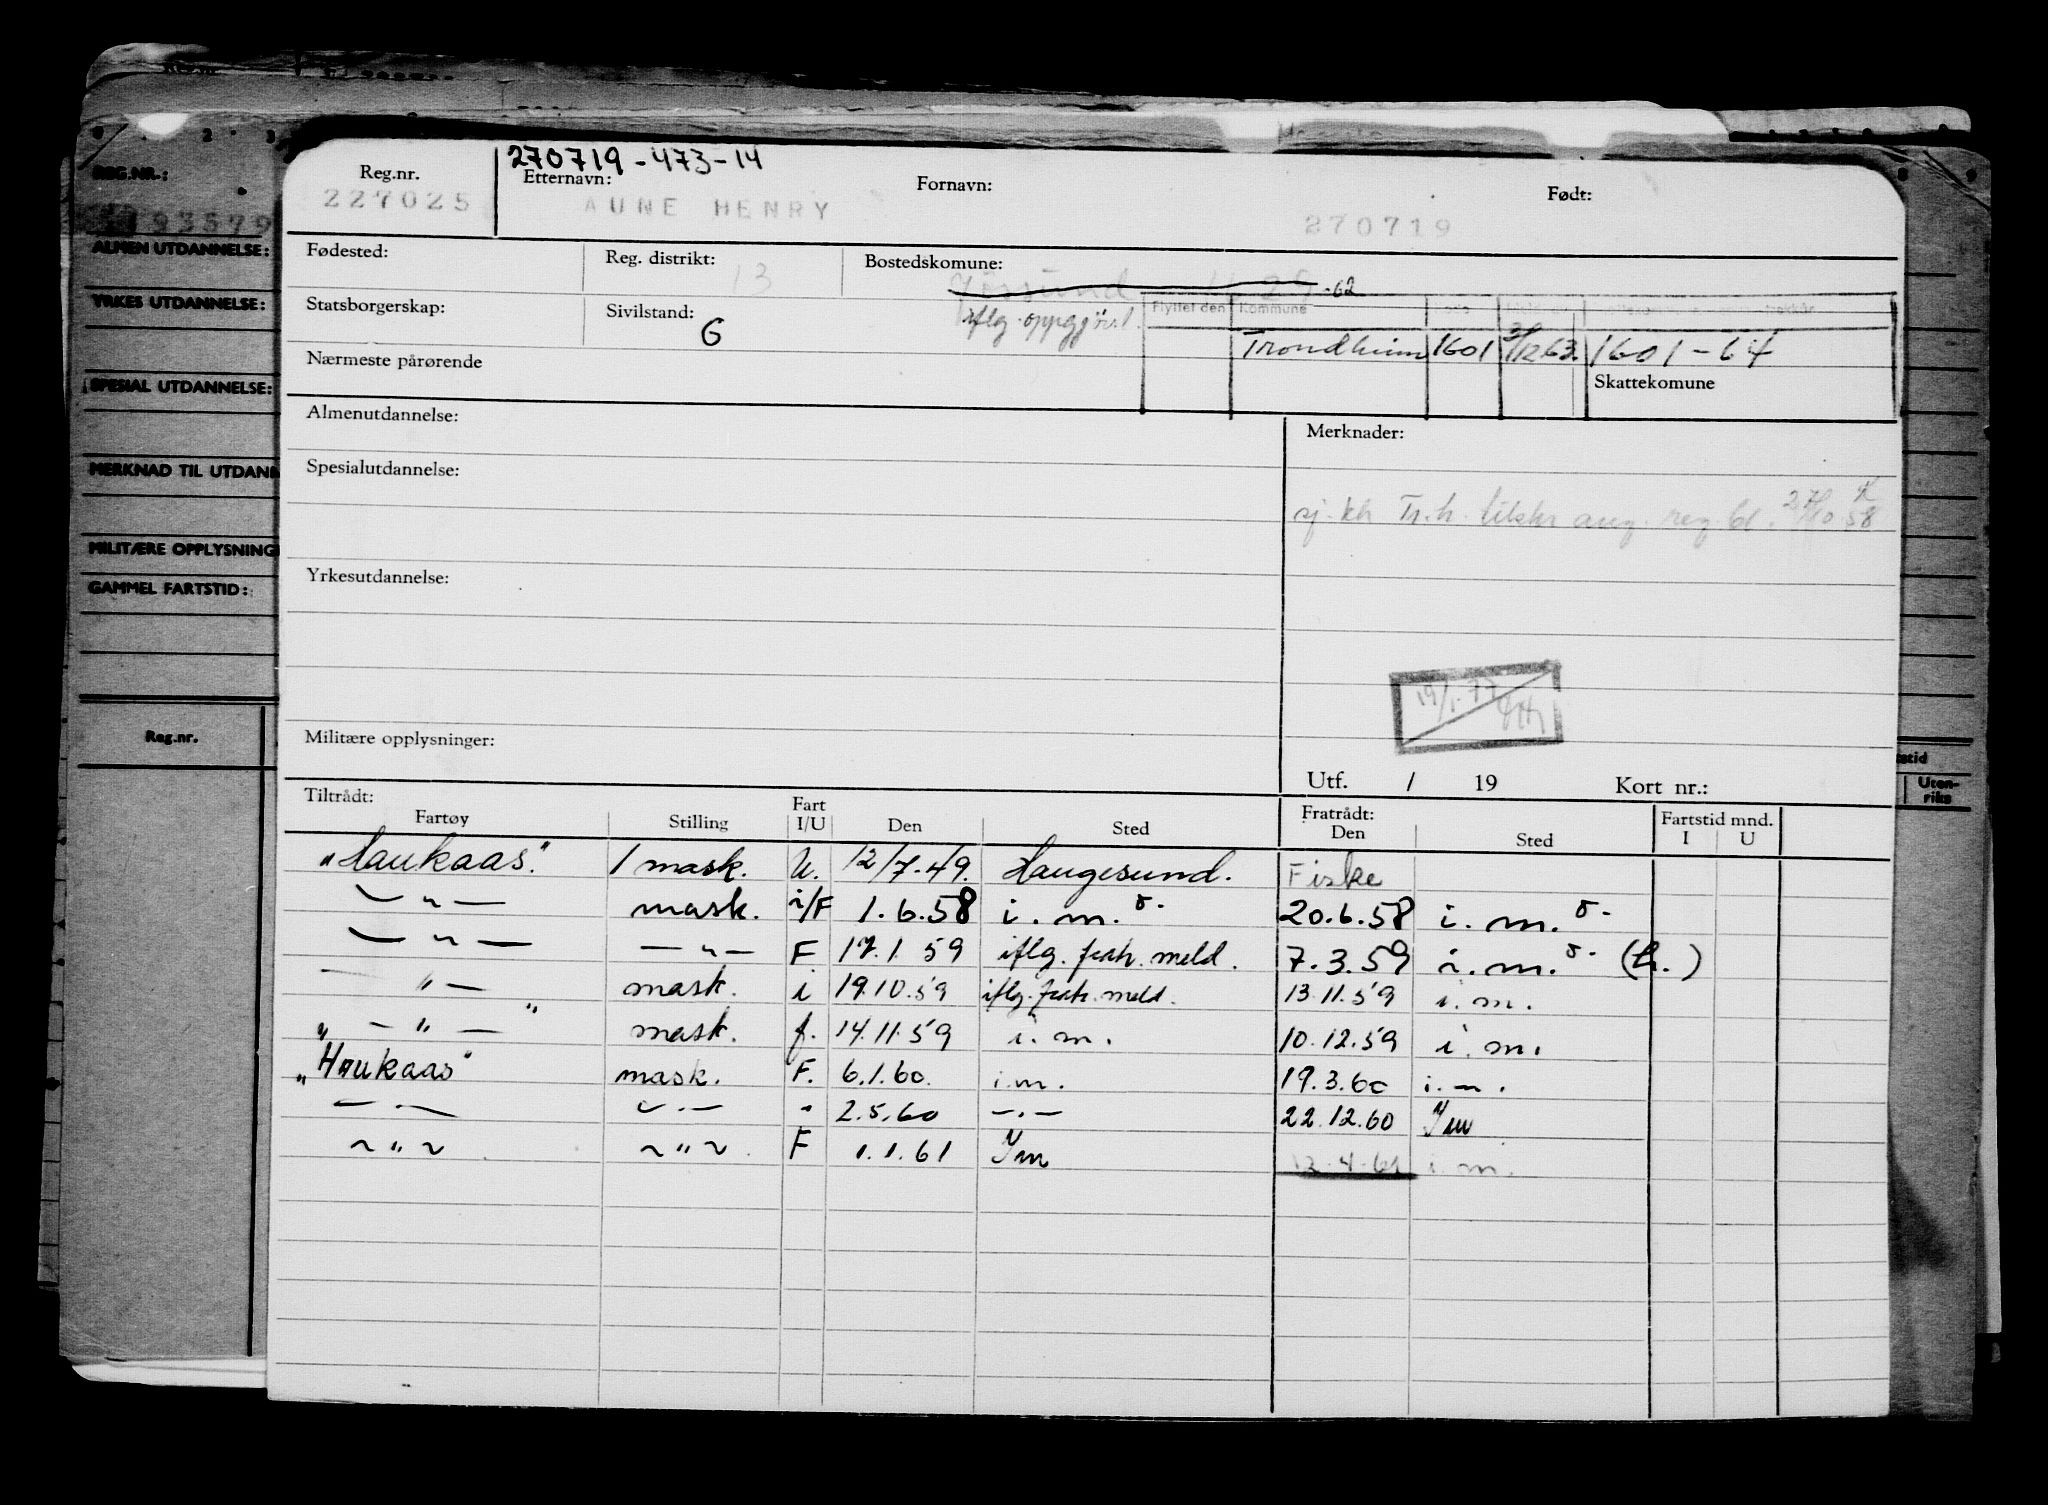 REG.NR.:
93579
ALMEN UTDANNELSE:
YRKES UTDANNELSE:
SPESIAL UTDANNELSE:
MERKNAD TIL UTDANN
MILITÆRE OPPLYSNING
GAMMEL FARTSTID:
Reg.nr.
Uten-
riks
270719-473-14
Reg.nr. Etternavn: Fornavn: Født:
227025 AUNE HENRY 270719
Fødested: Reg. distrikt: 13 Bostedskomune:
-62
Statsborgerskap: Sivilstand: G iflg. oppgjør Flyttet den Kommune
Trondheim 1601 1601-64
Nærmeste pårørende Skattekomune
Almenutdannelse: Merknader:
Spesialutdannelse:
sj. Tr.h. reg bl. 58
Yrkesutdannelse:
19/1-77
Militære opplysninger:
Utf. / 19 Kort nr.:
Tiltrådt: Fart Fratrådt: Fartstid mnd.
Fartøy Stilling I/U Den Sted Den Sted I U
"Haukaas". 1 mask. U. 12/7-49. Haugesund. Fiske
— " — mask. i/F 1.6.58 i.m.o. 20.6.58 i.m.o.
— " — — " — F 17.1.59 iflg. fratr. meld. 7.3.59 i.m.o.
— " — mask. i 19.10.59 iflg. fratr. meld. 13.11.59 i.m.
" — " — " mask. f. 14.11.59 i.m. 10.12.59 i.m.
"Haukaas" mask. F. 6.1.60. i.m. 19.3.60 i.m.
— . — — . — " 2.5.60 — . — 22.12.60 Im
~ " ~ ~ " ~ F 1.1.61 Im 12.4.61 i.m.